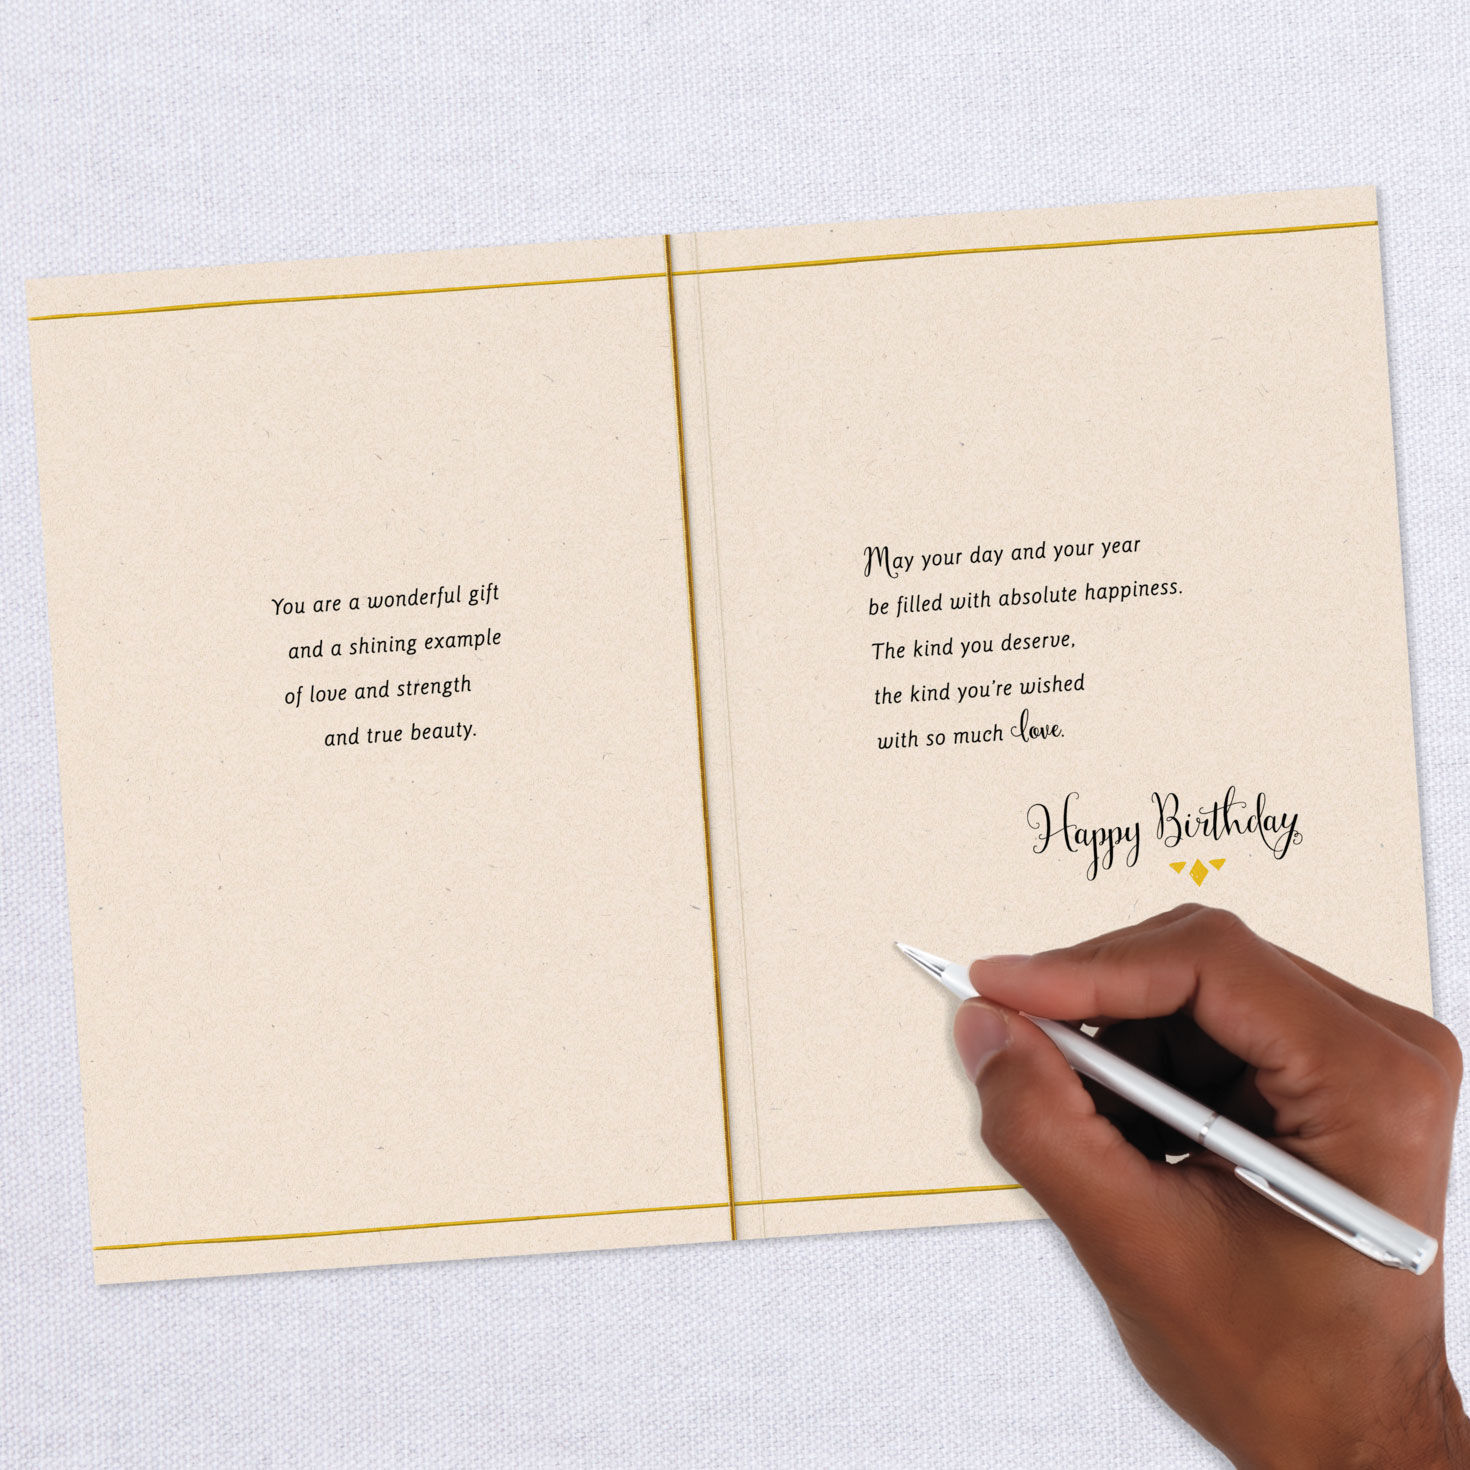 You are a wonderful gift
and a shining example
of love and strength
and true beauty.
May your day and your year
be filled with absolute happiness.
The kind you deserve,
the kind you're wished
with so much love.
Happy Birthday